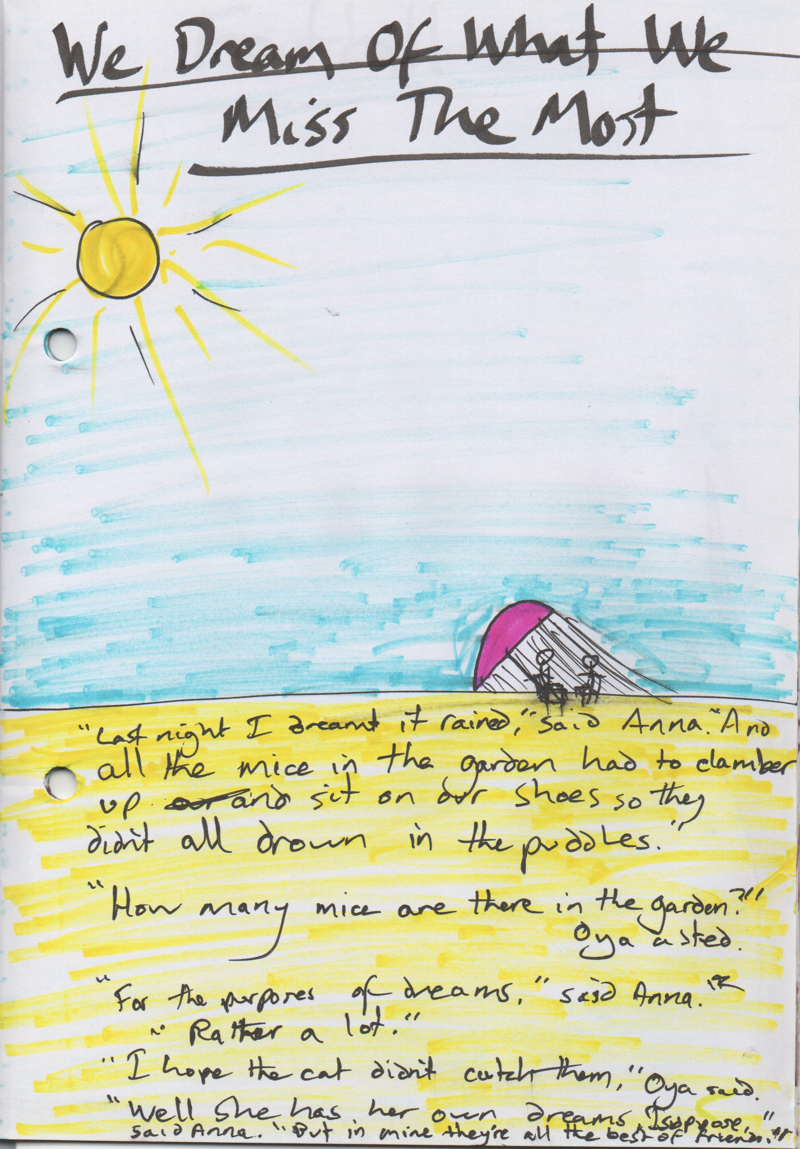 We Dream Of What We
Miss The Most
"Last night I dreamt it rained," said Anna. "And
all the mice in the garden had to clamber
up and sit on our shoes so they
didn't all drown in the puddles."
"How many mice are there in the garden?"
Oya asked.
"For the purposes of dreams," said Anna.
"Rather a lot."
"I hope the cat didn't catch them," Oya said.
"Well she has her own dreams, I suppose,"
said Anna. "But in mine they're all the best of friends."